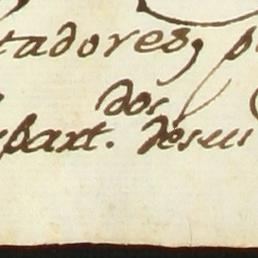 tadores, p
dos
part. de sus